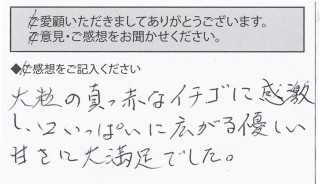 ご愛顧いただきましてありがとうございます。
ご意見・ご感想をお聞かせください。
◆ご感想をご記入ください
大粒の真っ赤なイチゴに感激
し、口いっぱいに広がる優しい
甘さに大満足でした。